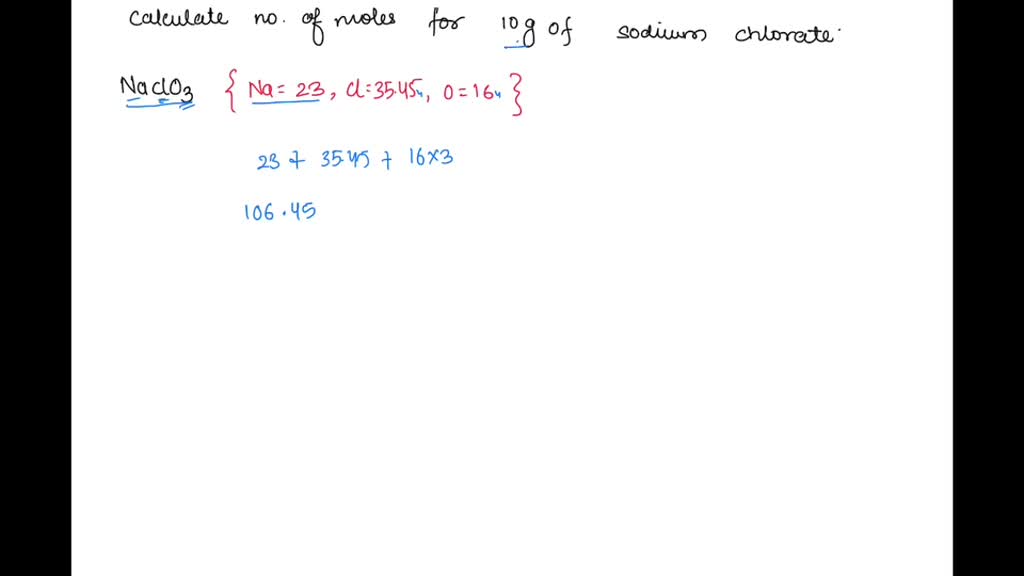 Calculate no. of moles for 10g of sodium chlorate.
NaClO3 { Na = 23, Cl = 35.45, O = 16 }
23 + 35.45 + 16×3
106.45